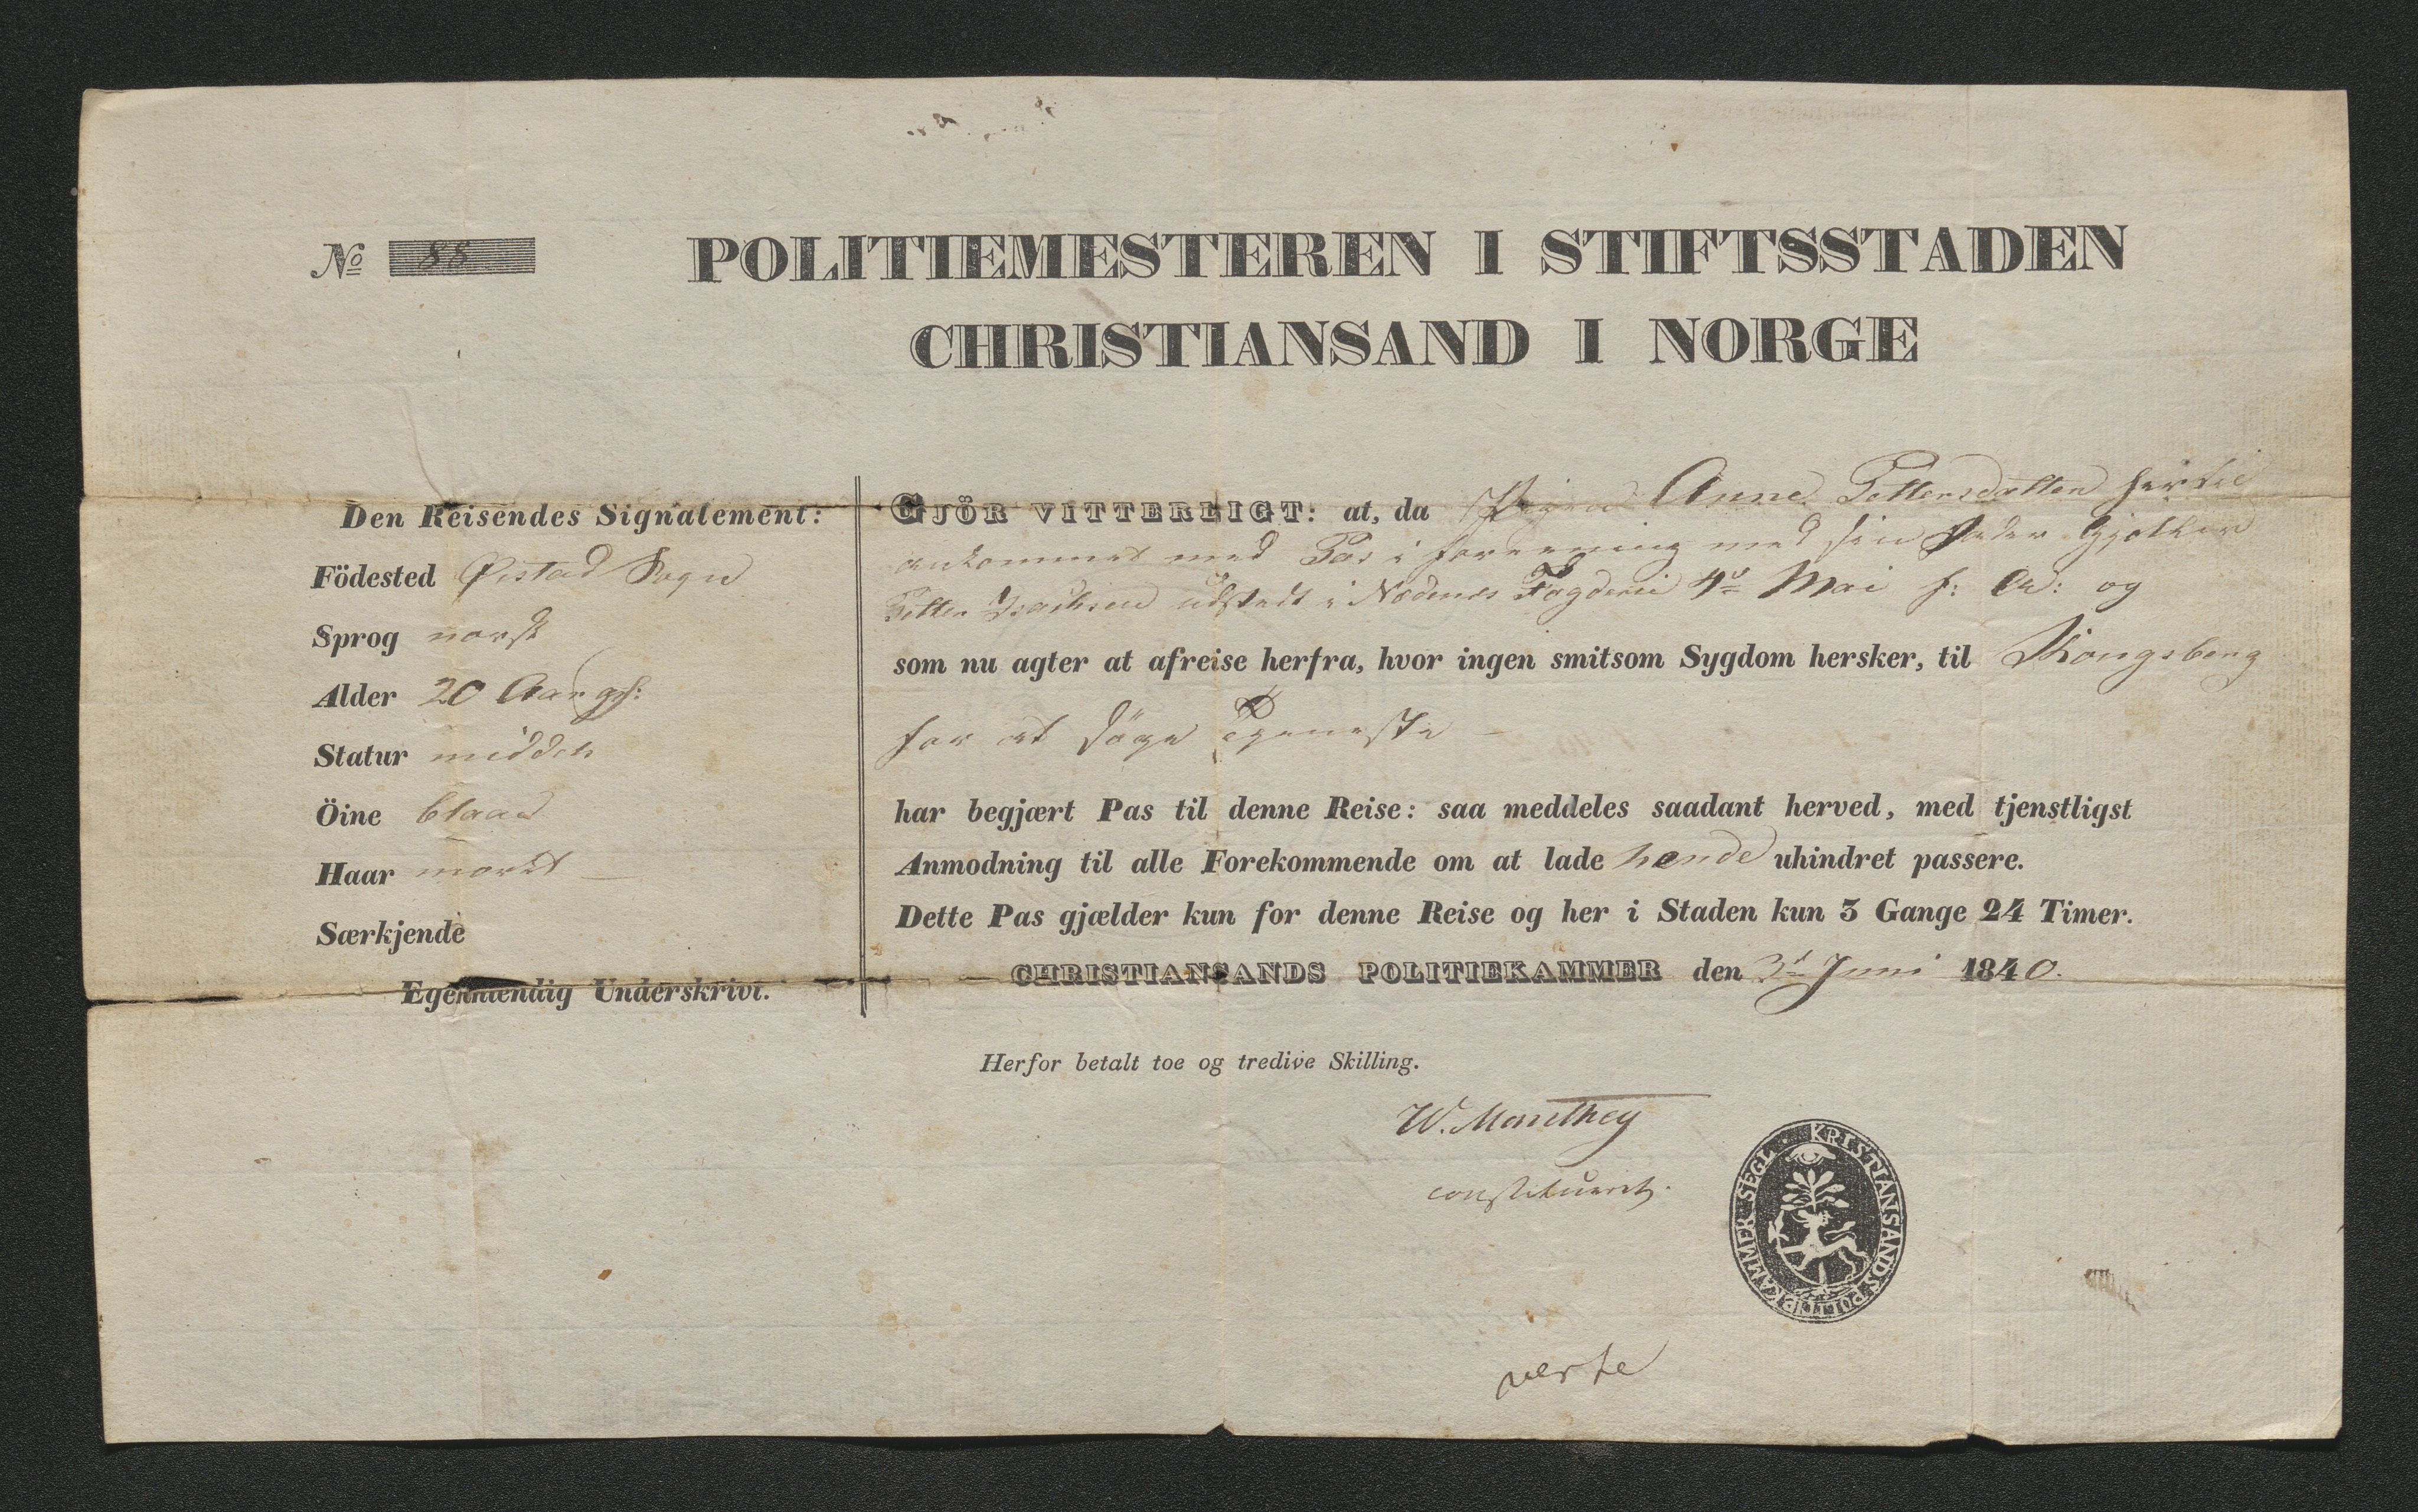 No 88
POLITIEMESTEREN I STIFTSSTADEN
CHRISTIANSAND I NORGE
Den Reisendes Signalement:
Födested Øistad Sogn
Sprog norsk
Alder 20 Aar gl:
Statur middels
Öine blaae
Haar morkt —
Særkjende
Egenhændig Underskrivt.
GJÖR VITTERLIGT: at, da Pigen Anne Pettersdatter hertil
ankommet med Pas i forening med sin Fader Gjotler
Petter Isachsen udstædt i Nedenes Fogderie 4de Mai h: A: og
som nu agter at afreise herfra, hvor ingen smitsom Sygdom hersker, til Kongsberg
for at söge Tjeneste —
har begjært Pas til denne Reise: saa meddeles saadant herved, med tjenstligst
Anmodning til alle Forekommende om at lade hende uhindret passere.
Dette Pas gjælder kun for denne Reise og her i Staden kun 3 Gange 24 Timer.
CHRISTIANSANDS POLITIEKAMMER den 3d Juni 1840.
Herfor betalt toe og tredive Skilling.
W. Monthey
constitueret.
KRISTIANSANDS POLITIEKAMMER SEGL
verte